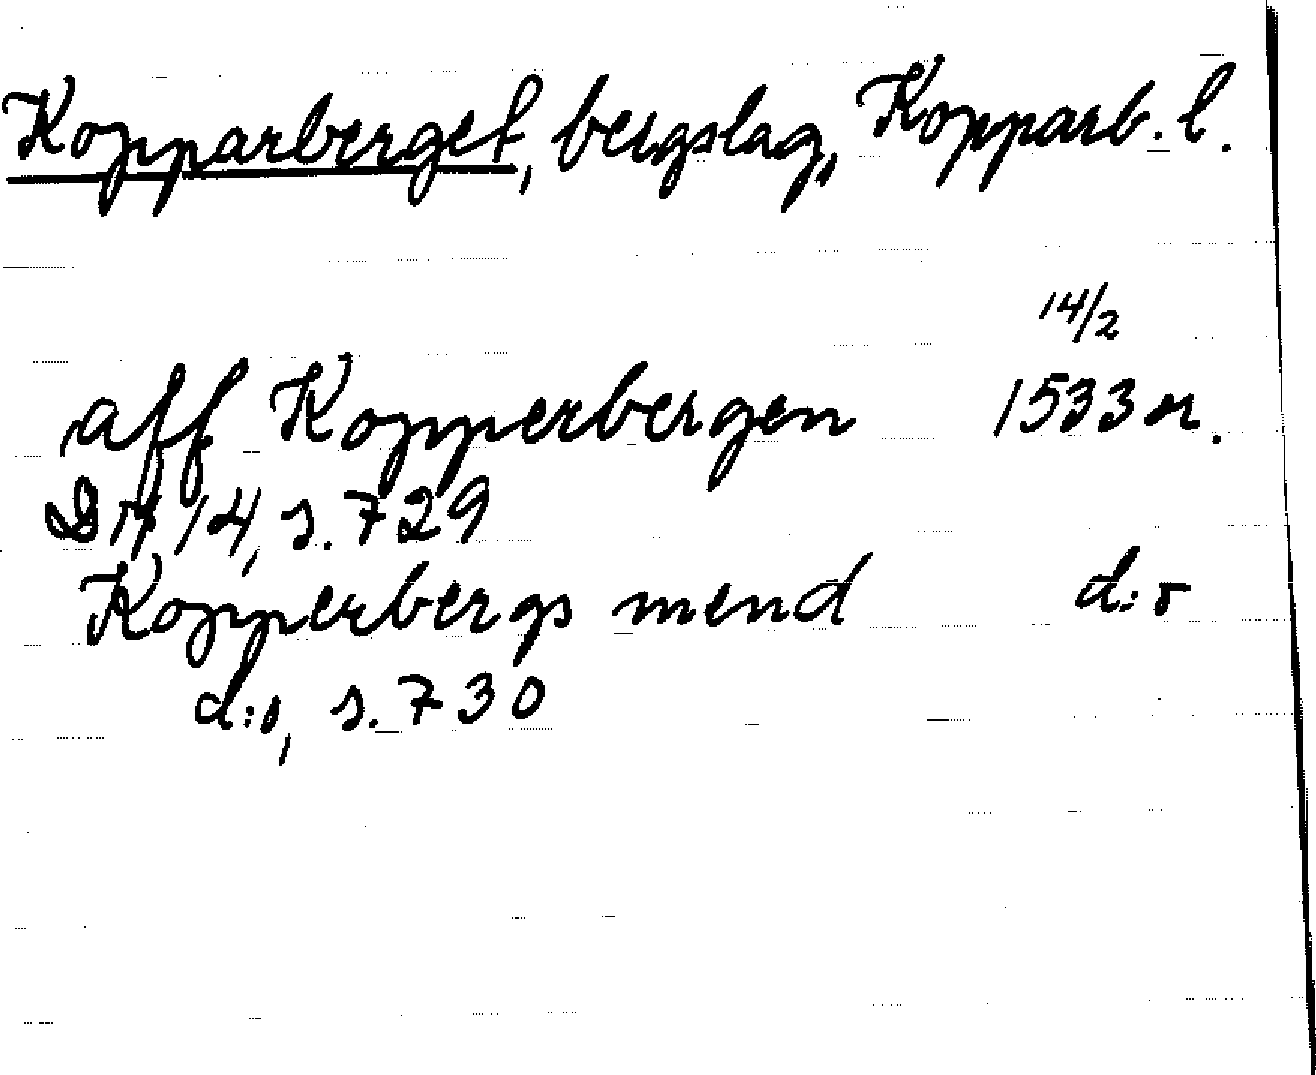 Kopparberget, bergslag, Kopparb. l.
14/2
aff Kopperbergen 1533 or.
DN 14, s. 729
Kopperbergs mend d:o
d:o, s. 730